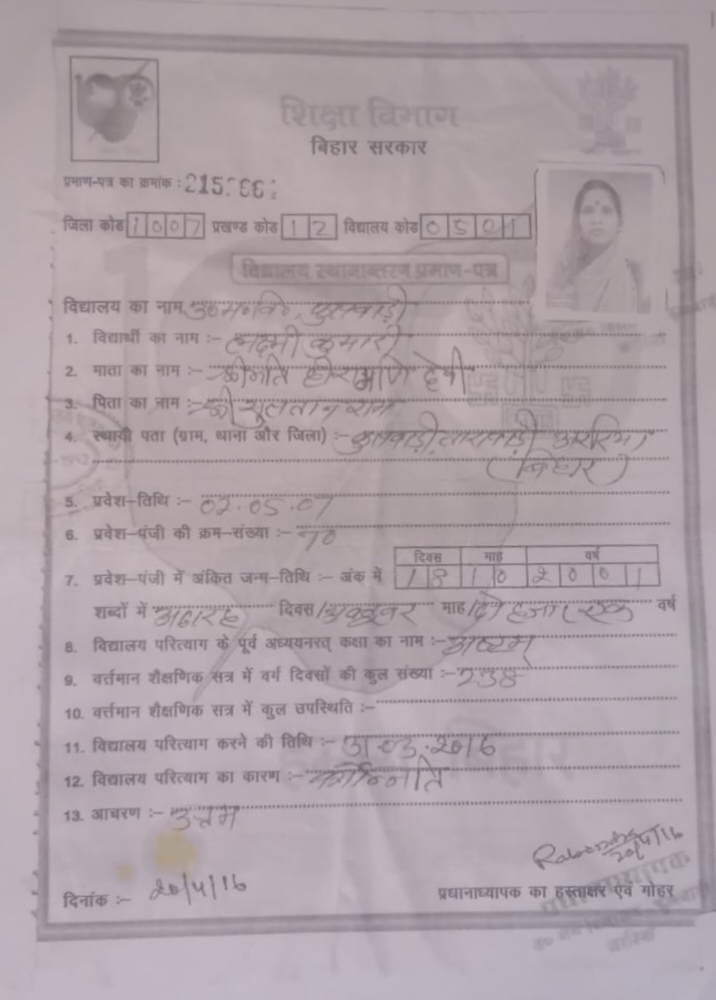 शिक्षा विभाग
बिहार सरकार
प्रमाण-पत्र का क्रमांक :
जिला कोड 1007 प्रखण्ड कोड 12 विद्यालय कोड 0501
विद्यालय स्थानान्तरण प्रमाण-पत्र
विद्यालय का नाम
1. विद्यार्थी का नाम :- लक्ष्मी कुमारी
2. माता का नाम :- श्रीमति हीरामणि देवी
3. पिता का नाम :- श्री सुलतान राम
4. स्थायी पता (ग्राम, थाना और जिला) :- अररिया
(बिहार)
5. प्रवेश-तिथि :- 02.05.07
6. प्रवेश-पंजी की क्रम-संख्या :-
दिवस माह वर्ष
7. प्रवेश-पंजी में अंकित जन्म-तिथि :- अंक में 18 10 2001
शब्दों में अठारह दिवस/अक्टूबर माह/दो हजार एक वर्ष
8. विद्यालय परित्याग के पूर्व अध्ययनरत् कक्षा का नाम :- अष्टम्
9. वर्त्तमान शैक्षणिक सत्र में वर्ग दिवसों की कुल संख्या :- 238
10. वर्त्तमान शैक्षणिक सत्र में कुल उपस्थिति :-
11. विद्यालय परित्याग करने की तिथि :- 31.03.2016
12. विद्यालय परित्याग का कारण :- वर्गोन्नति
13. आचरण :- उत्तम
20/4/16
दिनांक :- 20/4/16 प्रधानाध्यापक का हस्ताक्षर एवं मोहर